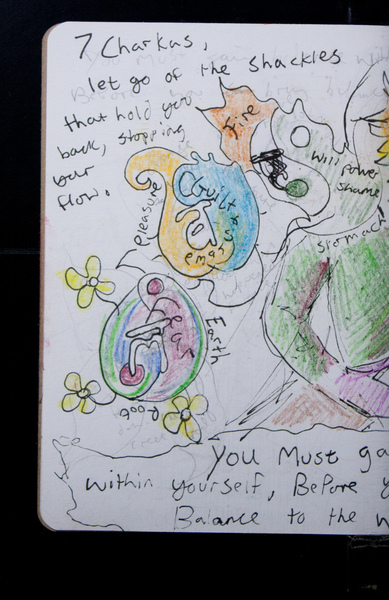 7 Charkas,
let go of the shackles
that hold you
back, stopping
your
flow.
Fire
Will power
Shame
Stomach
Pleasure
Guilt
Earth
Fear
Root
You Must ga
within yourself, Before y
Balance to the w